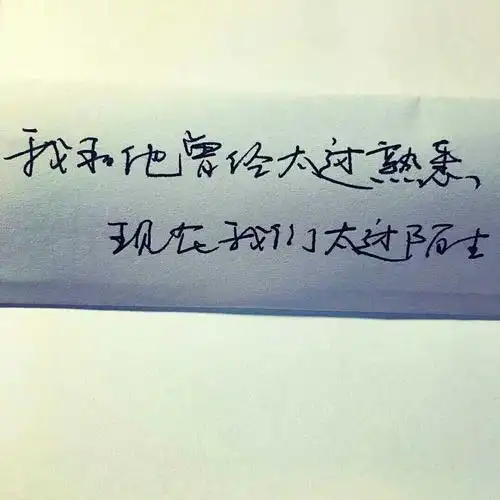 我和他曾经太过熟悉，
现在我们太过陌生